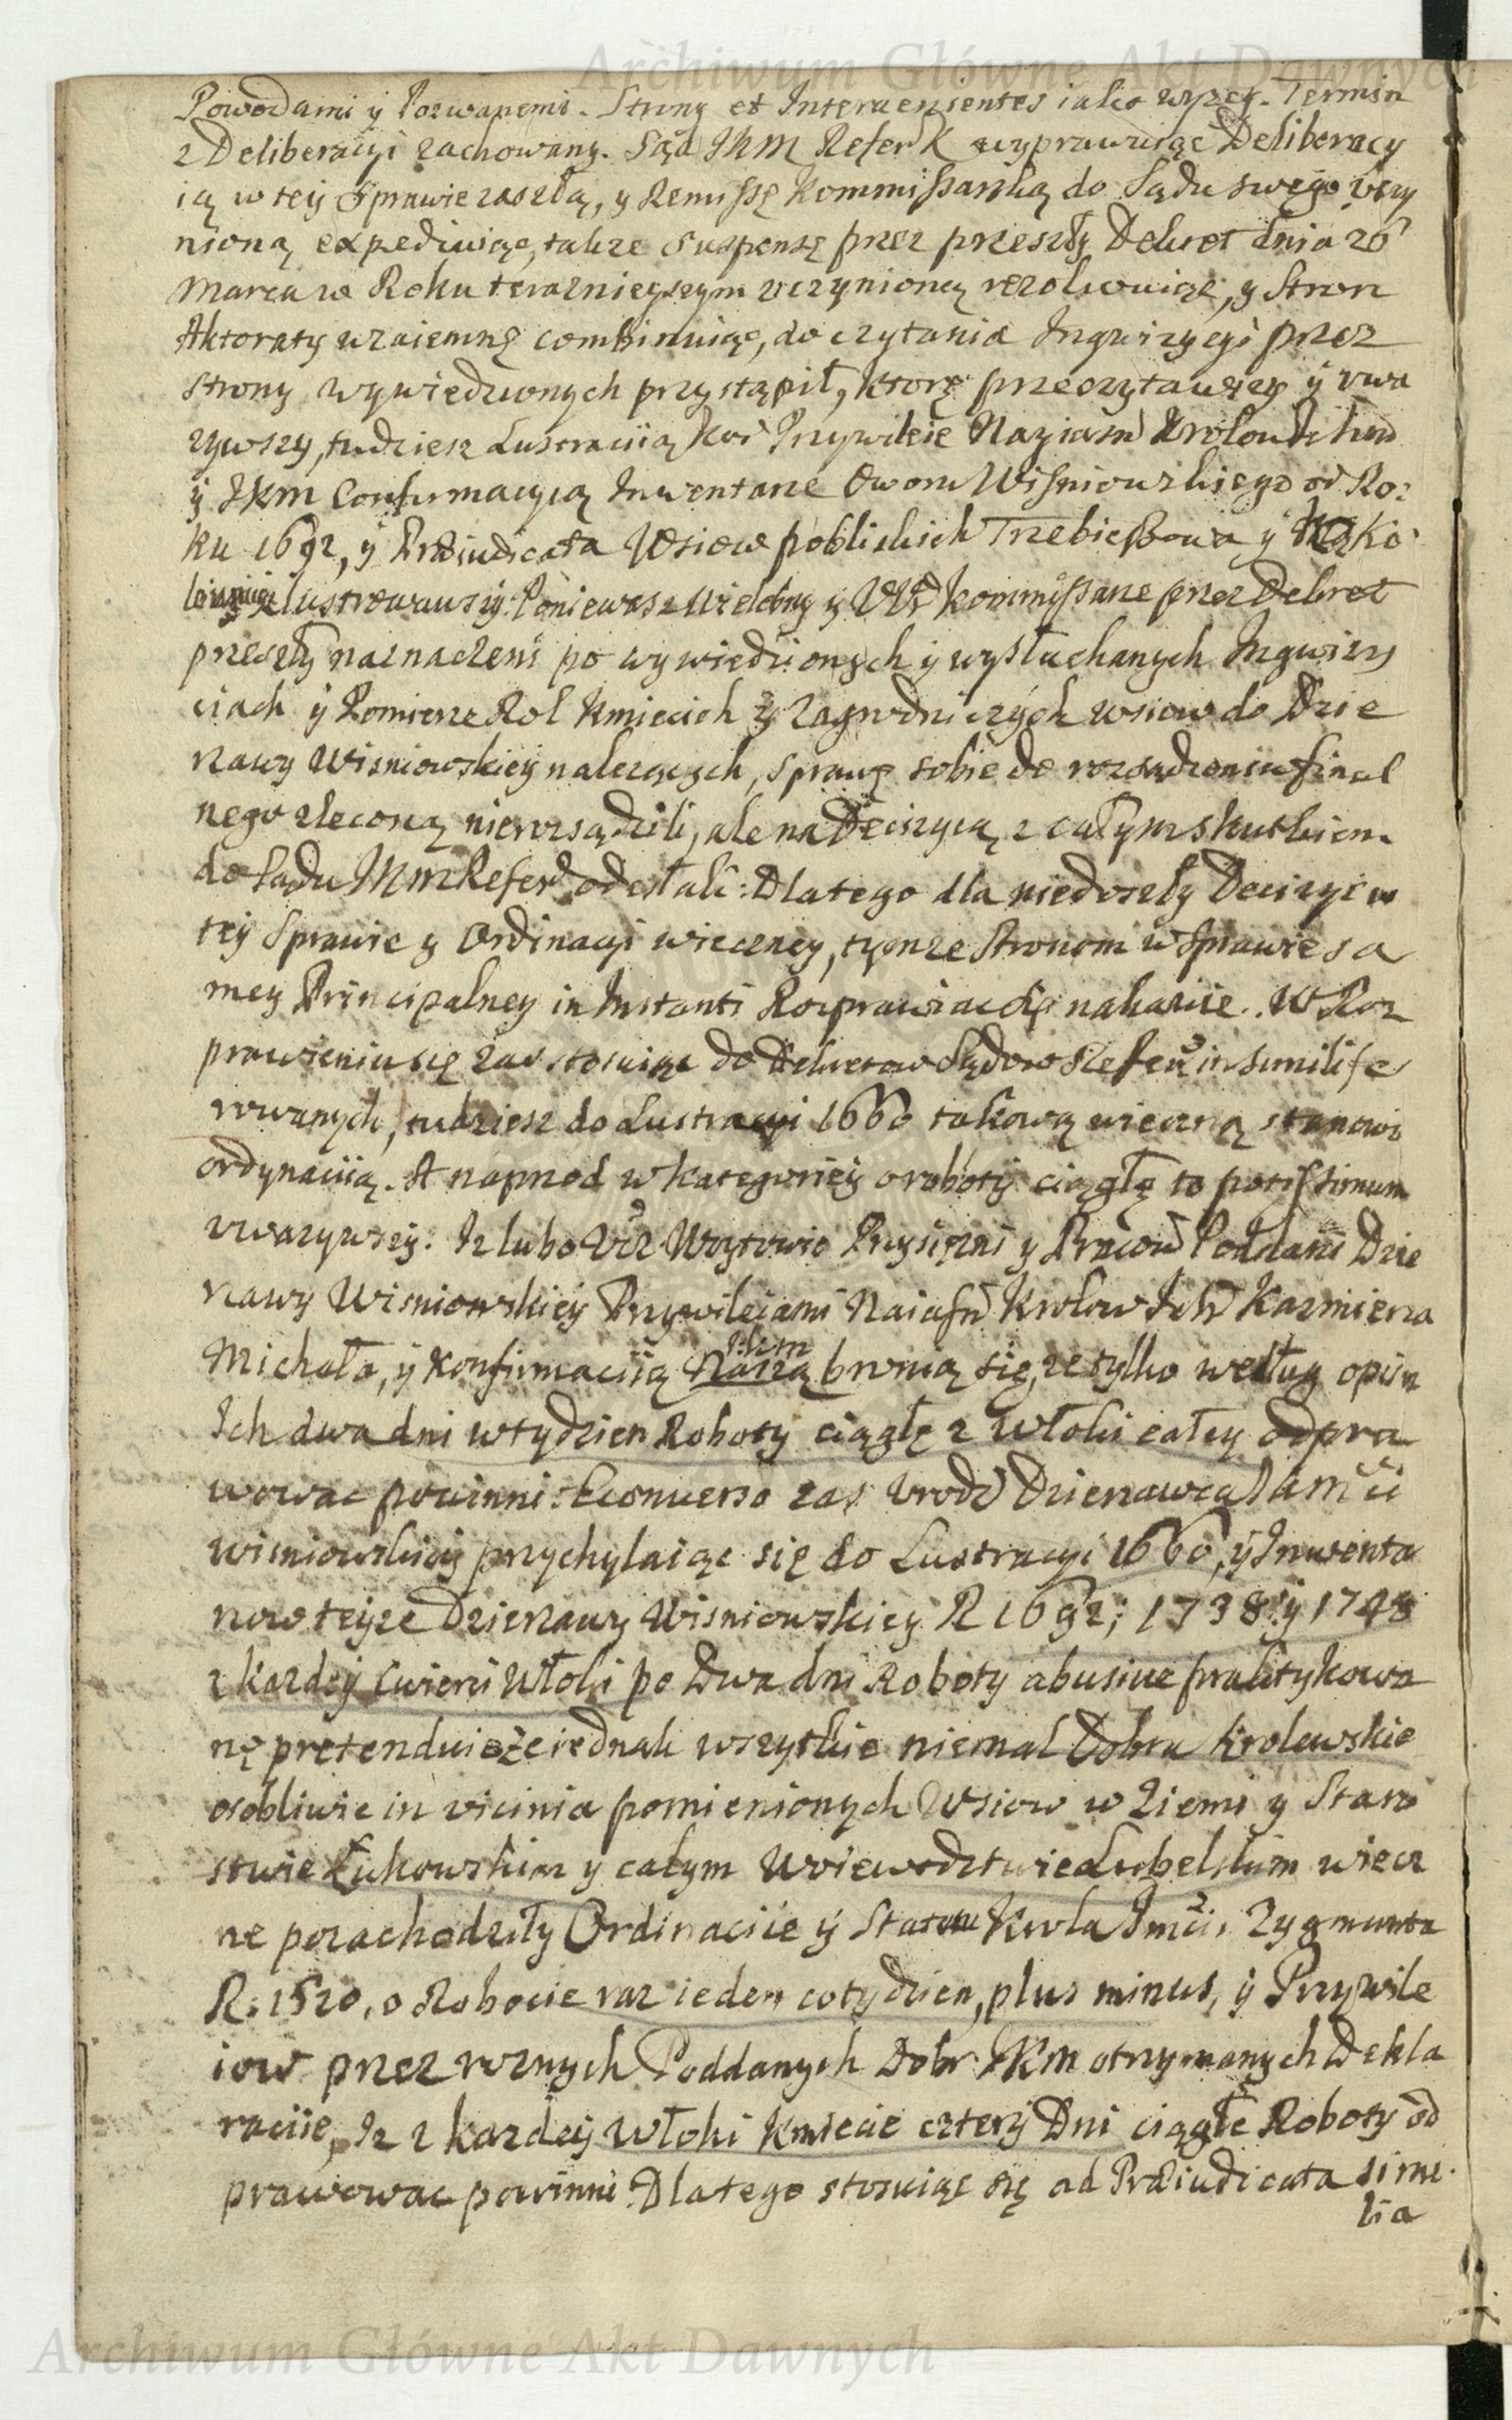 Archiwum Główne Akt Dawnych
Powodami ÿ Pozwanemi. Strony et Intervenientes iako wyzey. Termin
z Deliberacyi zachowany. Sąd JKM Refer K wyprawuiąc Deliberacy
ią w teÿ Sprawie zaszłą, y Remissę Kommissarską do Sądu swego uczy
nioną expediuiąc, takze Suspensę przez przeszły Dekret dnia 26
Marca w Roku teraznieyszym uczynioną rezolwuiąc, y Stron
Aktoraty wzaiemnę combinuiąc, do czytania Inqwizycyi przez
strony wywiedzionych przystąpił, ktorę przeczytawszy ÿ uwa
zywszy, tudziesz Lustraciią Przywileie Nayiasn Krolow
ÿ JKM Confirmacyią Inwentarze Dworu Wisniowskiego od Ro:
ku 1692, ÿ Præiudicata Wsiow pobliskich Trzebieszowa ÿ
zlustrowawszÿ: Poniewasz Wielebny ÿ Kommissarze przez Dekret
przeszły naznaczeni po wywiedzionych ÿ wysłuchanych Inqwizy
ciach ÿ Pomierze Rol Kmiecich y Zagrodniczych wsiow do Dzie
rzawy Wisniowskieÿ nalezących, sprawę sobie do rozsądzenia final
nego zleconą nierozsądzili, ale na Decizyią z całym skutkiem
do Sądu JKM Refer odesłali: Dlatego dla niedoszły Decizyi w
teÿ Sprawie y Ordinacyi wieczney, tymze Stronom w Sprawie sa
mey Principalney in Instanti Rozprawiac się nakazuie. W Roz
prawieniu się zas stosuiąc do Dekretow Sądow Refer in simili fe
rowanych, tudziesz do Lustracyi 1660 takową wieczną stanowi
ordynaciią. A naprzod w kategorieÿ o robotÿ ciągłę to potissimum
uwazywszÿ: Iz lubo Woytowie Przysięzni y Pracow Poddani Dzie
rzawy Wisniowskieÿ Przywileiami Naiasn Krolow Kazmierza
Michała, ÿ Konfirmaciią Naszą JKM bronią się, ze tylko według opisu
Ich dwa dni w tydzien Roboty ciągłę z Włoki całey odpra
wowac powinni: Econverso zas Urodz Dzierzawca
Wisniowskieÿ przychylaiąc się do Lustracyi 1660, ÿ Inwenta
rzow teÿze Dzierzawy Wisniowskiey R 1692; 1738 ÿ 1748
z kazdeÿ cwierci Włoki po Dwa dni Roboty abusive praktykowa
nę pretenduie że iednak wszystkie niemal Dobra Krolewskie
osobliwie in vicinia pomienionych Wsiow w Ziemi y Staro
stwie Łukowskim y całym Woiewodztwie Lubelskim wiecz
ne pozachodziły Ordinaciie ÿ Statutu Krola Jmci Zygmunta
R: 1520, o Robocie raz ieden co tydzien, plus minus, ÿ Przywile
iow przez roznych Poddanych Dobr JKM otrzymanych Dekla
raciie, Iz z kazdeÿ Włoki Kmiecie czterÿ Dni ciągłe Roboty od
prawowac powinni: Dlatego stosuiąc się ad Præiudicata simi
lia
Archiwum Główne Akt Dawnych